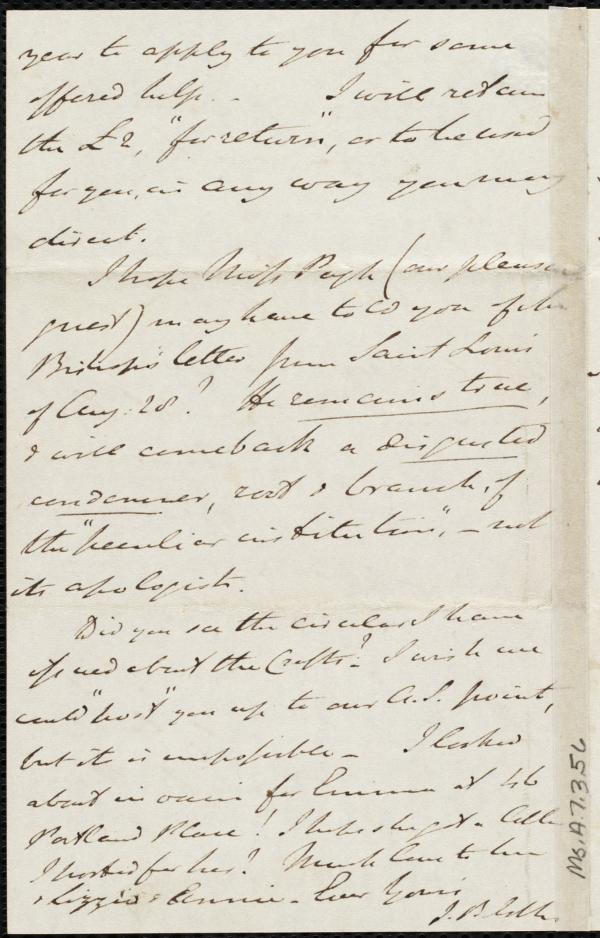 year to apply to you for some
offered help. - I will retain
the £2, "for return", or to be used
for you, in any way you may
direct.
I hope Miss Pugh (our pleasant
guest) may have told you of the
Bishop's letter from Saint Louis
of Aug. 28? He remains true,
& will come back a disgusted
condemner, root & branch, of
the "peculiar institution", - not
its apologist.
Did you see the circular I have
issued about the Crafts? I wish we
could "boost" you up to our A.S. point,
but it is impossible - I looked
about in vain for Emma at 46
Portland Place! I hope she got a
I posted for her? Much love to her
& Lizzie & Annie - Ever Yours
J. B. Estlin
Ms.A.7.3.56